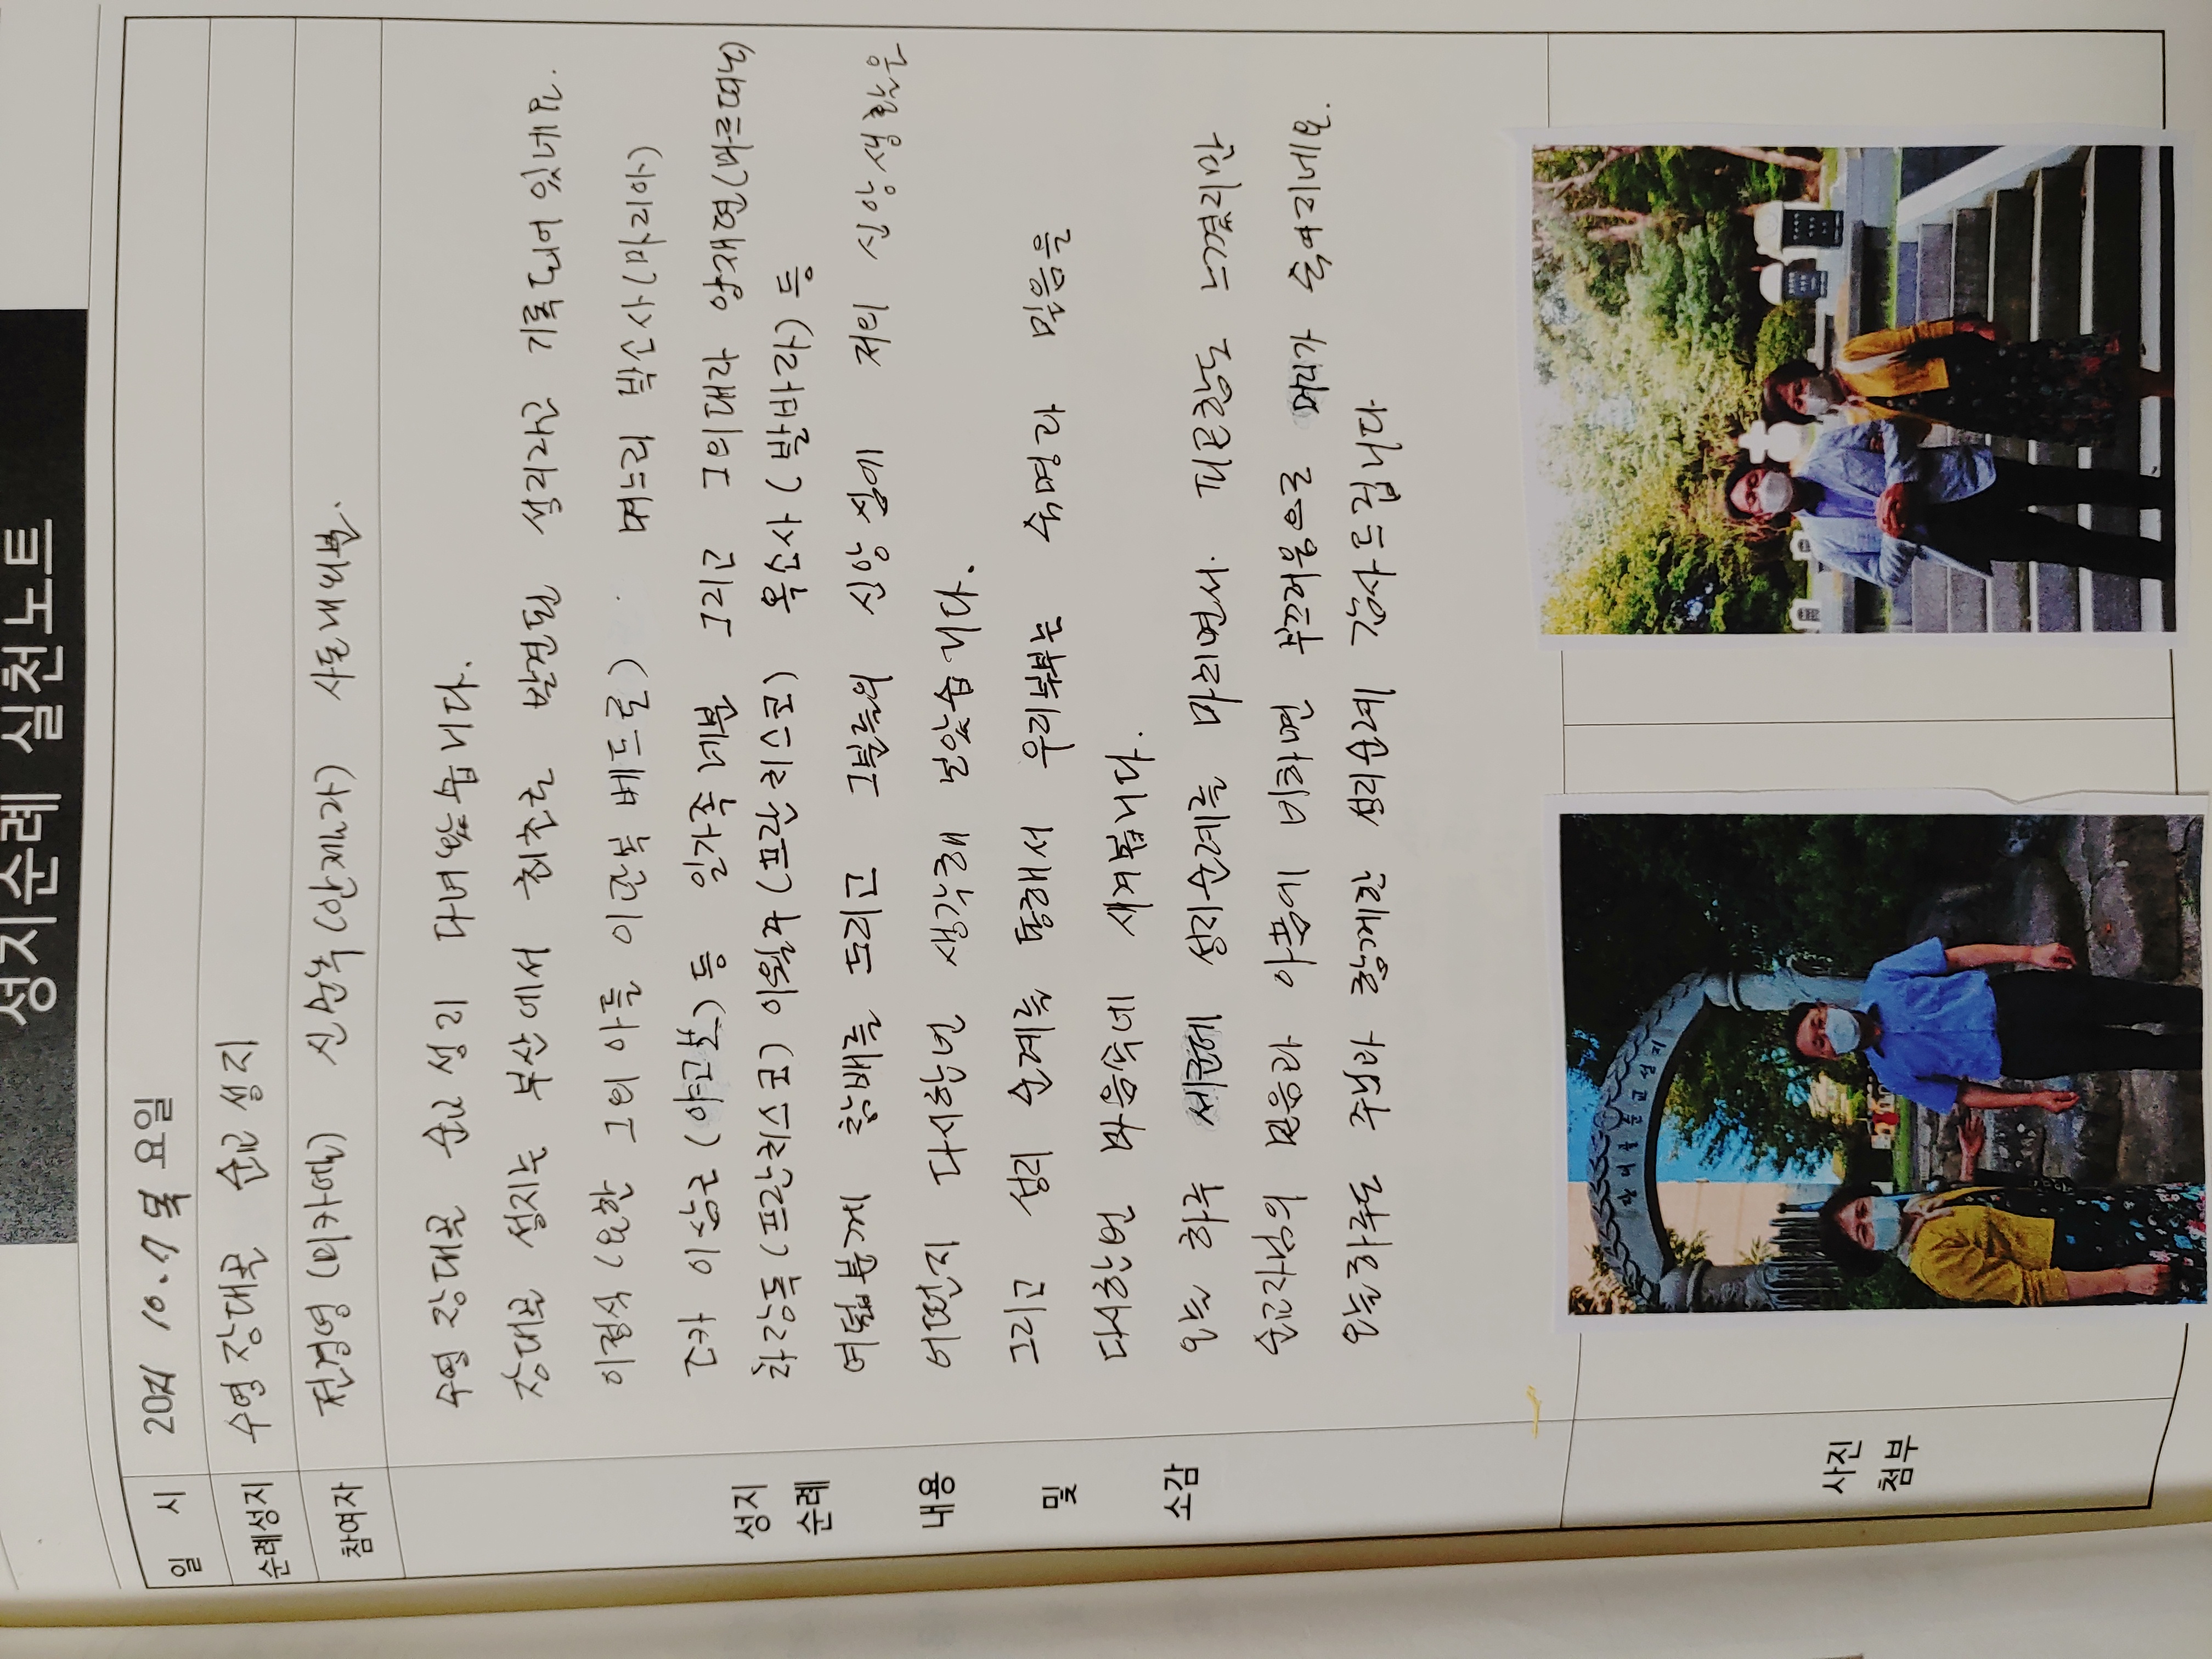 성지순례 실천노트
일 시 2021 10. 7 목요일
순례성지 수영 장대골 순교 성지
참여자 전경영 (미카엘) 신순녹 (안젤라) 사돈내외분.
성지
순례
내용
및
소감
수영 장대골 순교 성지 다녀왔습니다.
장대골 성지는 부산에서 최초로 발견된 성지라고 기록되어 있네요.
이정식 (요한 그의 아들 이관복 베드로) 며느리 박소사 (마리아)
조카 이삼근 (야고보) 등 일가족 네분 그리고 그의 대라 양재현 (마르띠노)
차장득 (프란치스코) 이월주 (프란치스코) 옥소사 (발바라) 등
여덟분께 참배를 드리고 그분들의 신앙심에 저의 신앙생활은
어떤지 다시한번 생각해 보았습니다.
그리고 성지 순례를 통해서 우리부부는 숙명과 믿음을
다시한번 마음속에 새겨봅니다.
오늘 하루 세군데 성지순례를 마치면서. 피곤함도 느꼈지만
순교자님의 믿음과 아픔에 비하면 부끄러움으로 머리가 숙여지네요.
오늘하루도 주님과 함께한 성지순례 감사드립니다
사진
첨부
장대골순교성지